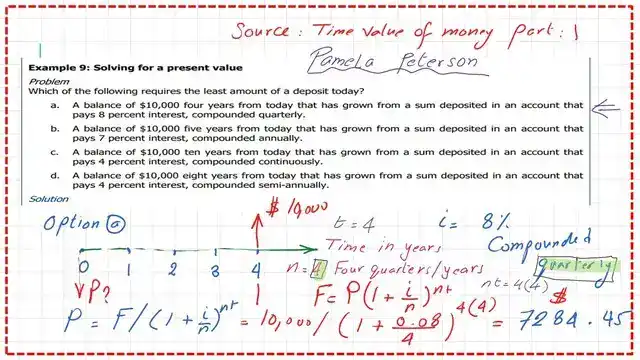 Source: Time value of money part: 1
Pamela Peterson
Example 9: Solving for a present value
Problem
Which of the following requires the least amount of a deposit today?
a. A balance of $10,000 four years from today that has grown from a sum deposited in an account that
pays 8 percent interest, compounded quarterly.
b. A balance of $10,000 five years from today that has grown from a sum deposited in an account that
pays 7 percent interest, compounded annually.
c. A balance of $10,000 ten years from today that has grown from a sum deposited in an account that
pays 4 percent interest, compounded continuously.
d. A balance of $10,000 eight years from today that has grown from a sum deposited in an account that
pays 4 percent interest, compounded semi-annually.
Solution
Option a
$ 10,000
t=4
i= 8%
Time in years
Compounded
quarterly
0 1 2 3 4
n=4 Four quarters/years
nt=4(4)
P?
F=P(1+i/n)^nt
$
P = F/(1+i/n)^nt = 10,000/(1+0.08/4)^4(4) = 7284.45